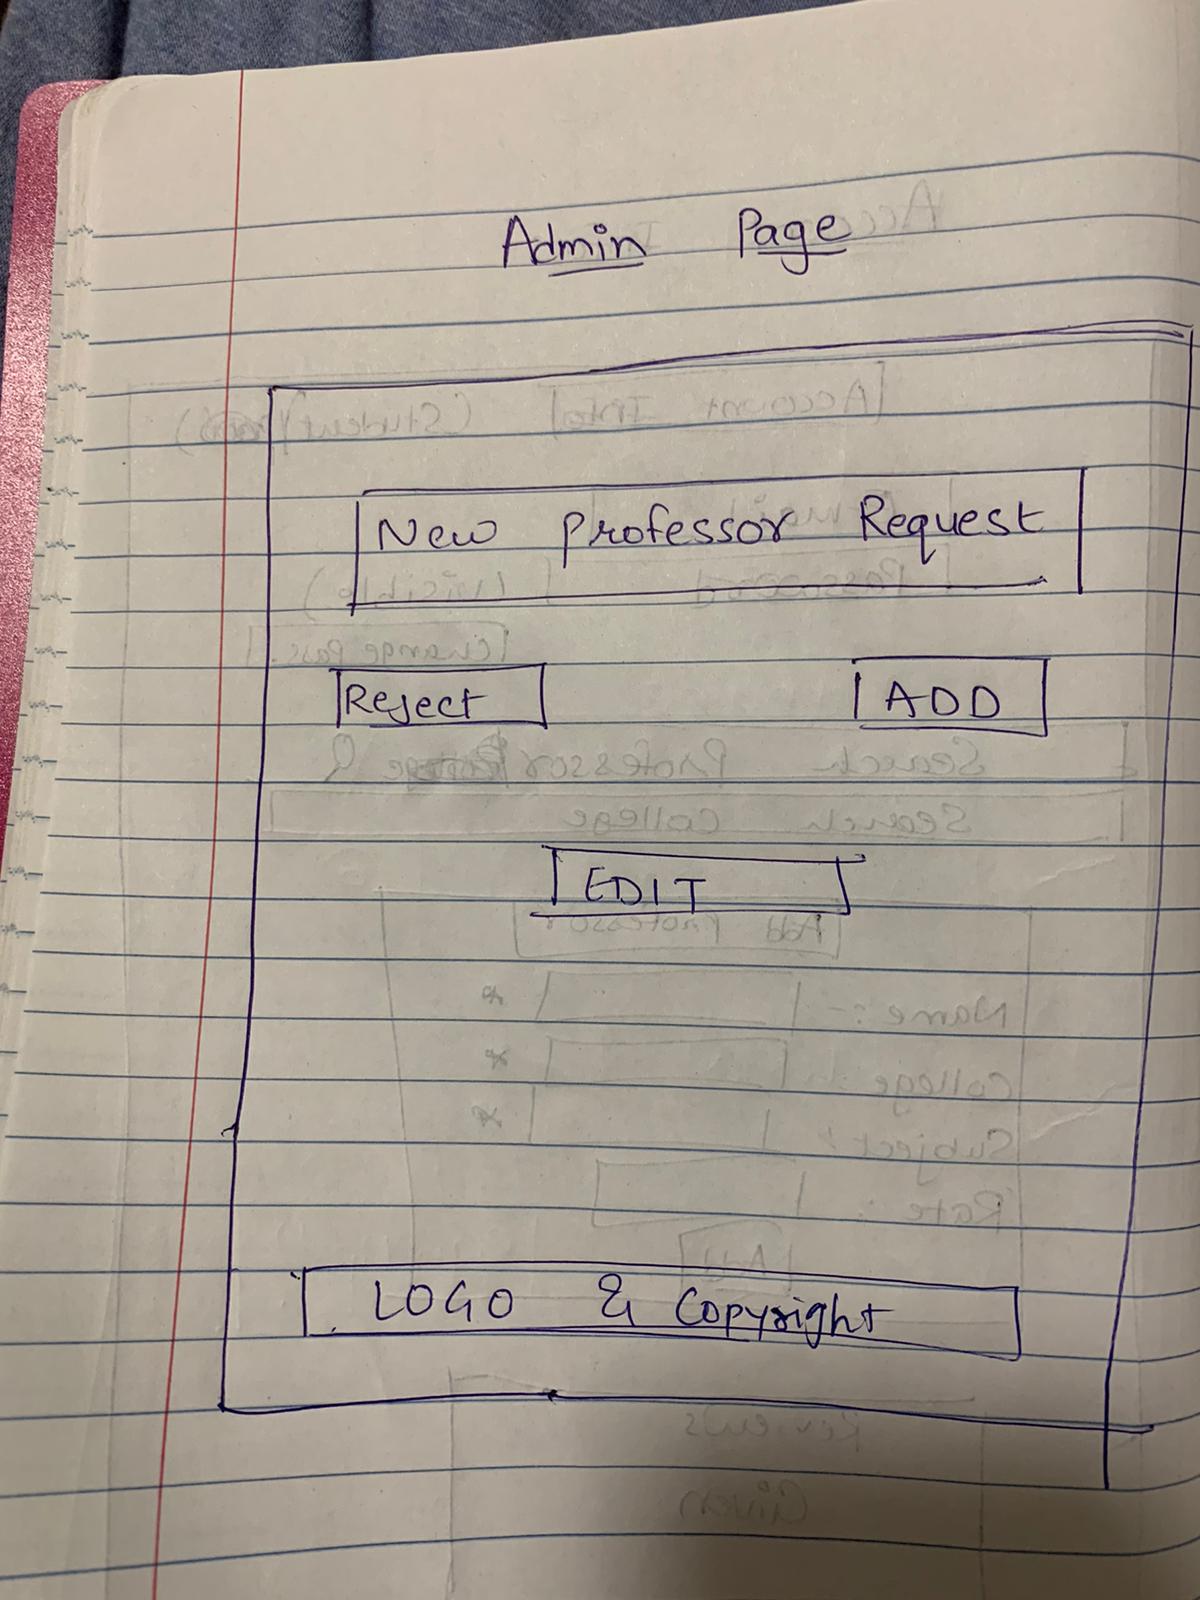 Admin Page
New Professor Request
Reject
ADD
EDIT
LOGO & Copyright